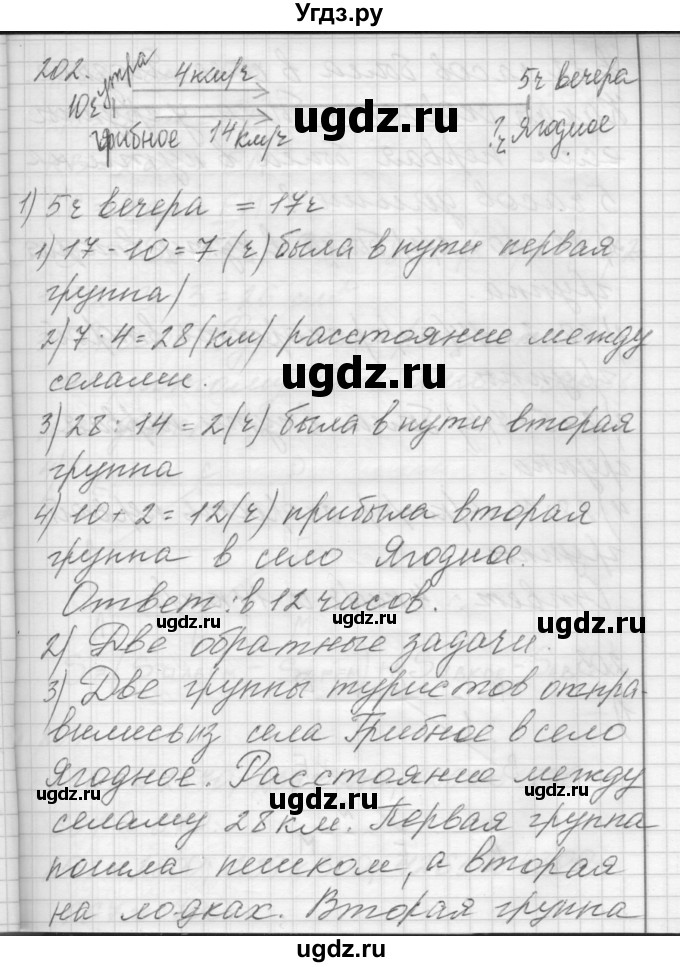 Угдз.ру
202.
10ч утра
4км/ч
5ч вечера
Грибное 14км/ч
?ч Ягодное
1) 5ч вечера = 17ч
1) 17 - 10 = 7 (ч) была в пути первая
группа)
2) 7 · 4 = 28 (км) расстояние между
селами.
3) 28 : 14 = 2 (ч) была в пути вторая
группа
4) 10 + 2 = 12 (ч) прибыла вторая
группа в село Ягодное.
Ответ: в 12 часов.
2) Две обратные задачи.
3) Две группы туристов отпра-
вились из села Грибное в село
Ягодное. Расстояние между
селаму 28 км. Первая группа
пошла пешком, а вторая
на лодках. Вторая группа
ugdz.ru
ugdz.ru
ugdz.ru
ugdz.ru
ugdz.ru
ugdz.ru
ugdz.ru
ugdz.ru
ugdz.ru
ugdz.ru